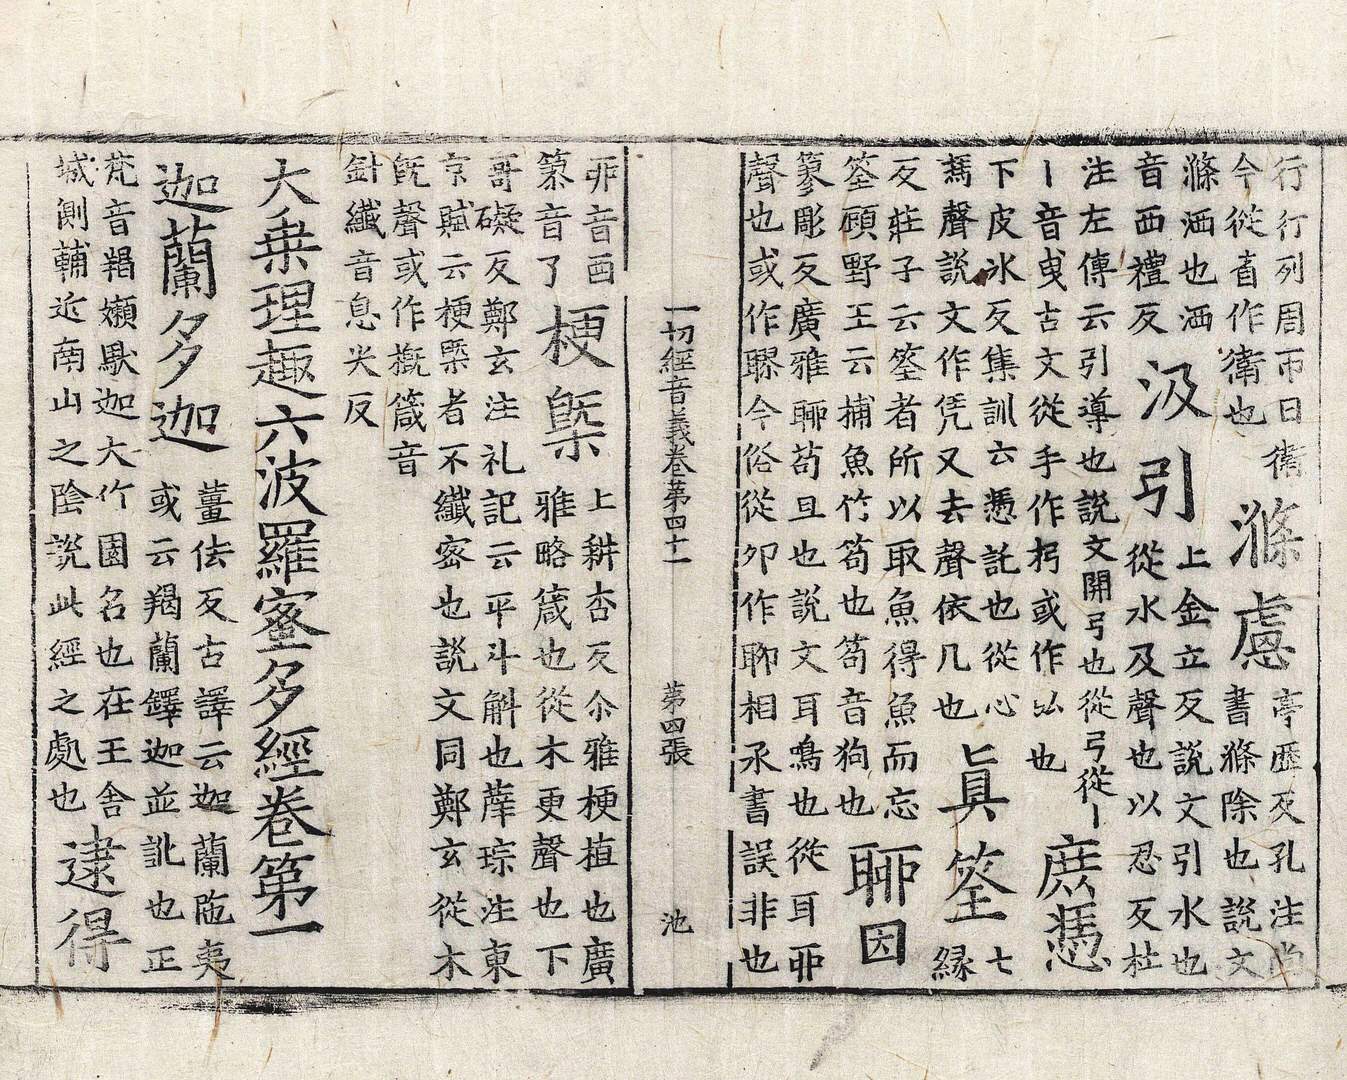 行行列周帀曰衛
今從省作衛也
滌慮
亭歷反孔注尚
書滌除也說文
滌洒也洒
音西禮反
汲引
上金立反說文引水也
從水及聲也以忍反杜
注左傳云引導也說文開弓也從弓從丨
丨音曵古文從手作抈或作弘也
庶憑
下皮氷反集訓云憑託也從心
馮聲說文作凭又去聲依几也
眞筌
七
縁
反莊子云筌者所以取魚得魚而忘
筌顧野王云捕魚竹笱也笱音狗也
聊因
篸彫反廣雅聊苟且也說文耳鳴也從耳戼
聲也或作聮今俗從夘作聊相承書誤非也
一切經音義卷苐四十一 苐四張 池
戼音酉
篸音了
梗槩
上耕杏反尒雅梗植也廣
雅略箴也從木更聲也下
哥礙反鄭玄注礼記云平斗斛也薛琮注東
京賦云梗槩者不纎密也說文同鄭玄從木
旣聲或作槪箴音
針纎音息尖反
大乗理趣六波羅蜜多經卷第一
迦蘭多迦
薑佉反古譯云迦蘭陁夷
或云羯蘭鐸迦並訛也正
梵音羯嬾馱迦大竹園名也在王舍
城側鞴近南山之陰說此經之處也
逮得